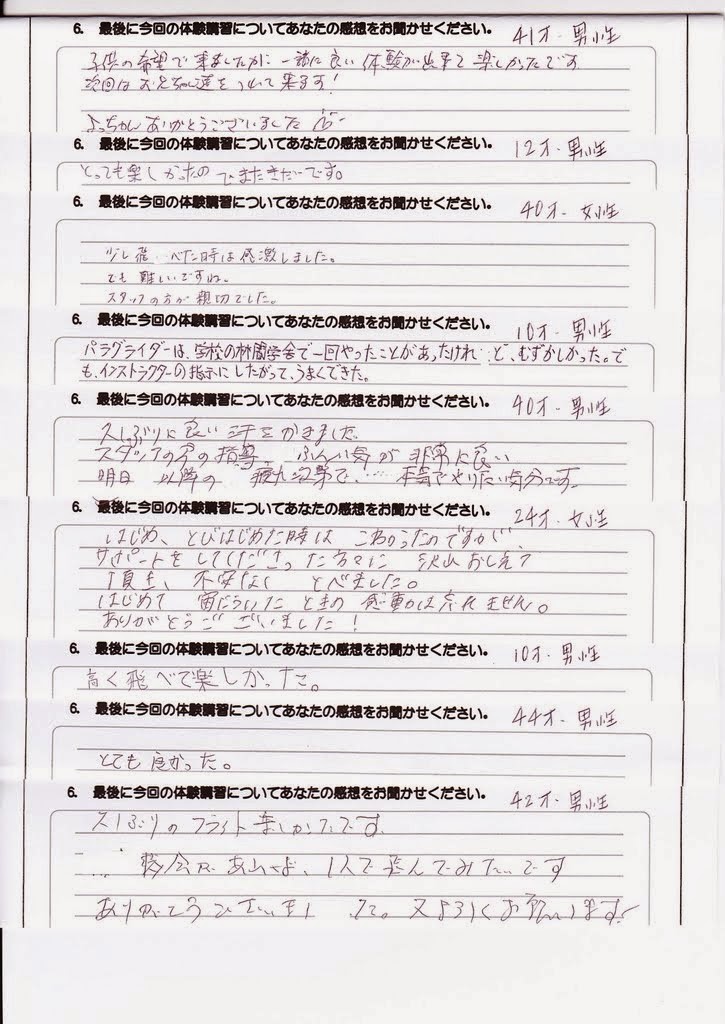 6. 最後に今回の体験講習についてあなたの感想をお聞かせください。 41才・男性
子供の希望で来ましたが 一緒に良い体験が出来て 楽しかったです
次回はお兄ちゃん達をつれて来ます!
よっちゃんありがとうございました
6. 最後に今回の体験講習についてあなたの感想をお聞かせください。 12才・男性
とっても楽しかったのでまたきたいです。
6. 最後に今回の体験講習についてあなたの感想をお聞かせください。 40才・女性
少し飛べた時は感激しました。
でも難しいですね。
スタッフの方が親切でした。
6. 最後に今回の体験講習についてあなたの感想をお聞かせください。 10才・男性
パラグライダーは、学校の林間学舎で一回やったことがあったけれど、むずかしかった。で
も、インストラクターの指示にしたがって、うまくできた。
6. 最後に今回の体験講習についてあなたの感想をお聞かせください。 40才・男性
久しぶりに良い汗をかきました
スタッフの方の指導、ふんい気が非常に良い
明日以降の疲れ次第で、…本当でやりたい気分です。
6. 最後に今回の体験講習についてあなたの感想をお聞かせください。 24才・女性
はじめ、とびはじめた時は こわかったのですが
サポートをしてくださった方々に 沢山おしえて
頂き、不安なく とべました。
はじめて宙にういたときの感動は忘れません。
ありがとうございました!
6. 最後に今回の体験講習についてあなたの感想をお聞かせください。 10才・男性
高く飛べて楽しかった。
6. 最後に今回の体験講習についてあなたの感想をお聞かせください。 44才・男性
とても良かった。
6. 最後に今回の体験講習についてあなたの感想をお聞かせください。 42才・男性
久しぶりのフライト楽しかったです
機会があれば、1人で飛んでみたいです
ありがとうございました。又よろしくお願いします